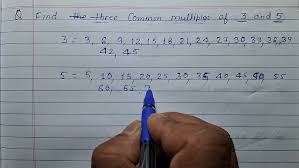 Q Find the three Common multiples of 3 and 5
3 = 3, 6, 9, 12, 15, 18, 21, 24, 27, 30, 33, 36, 39
42, 45
5 = 5, 10, 15, 20, 25, 30, 35, 40, 45, 50, 55
60, 65, 7